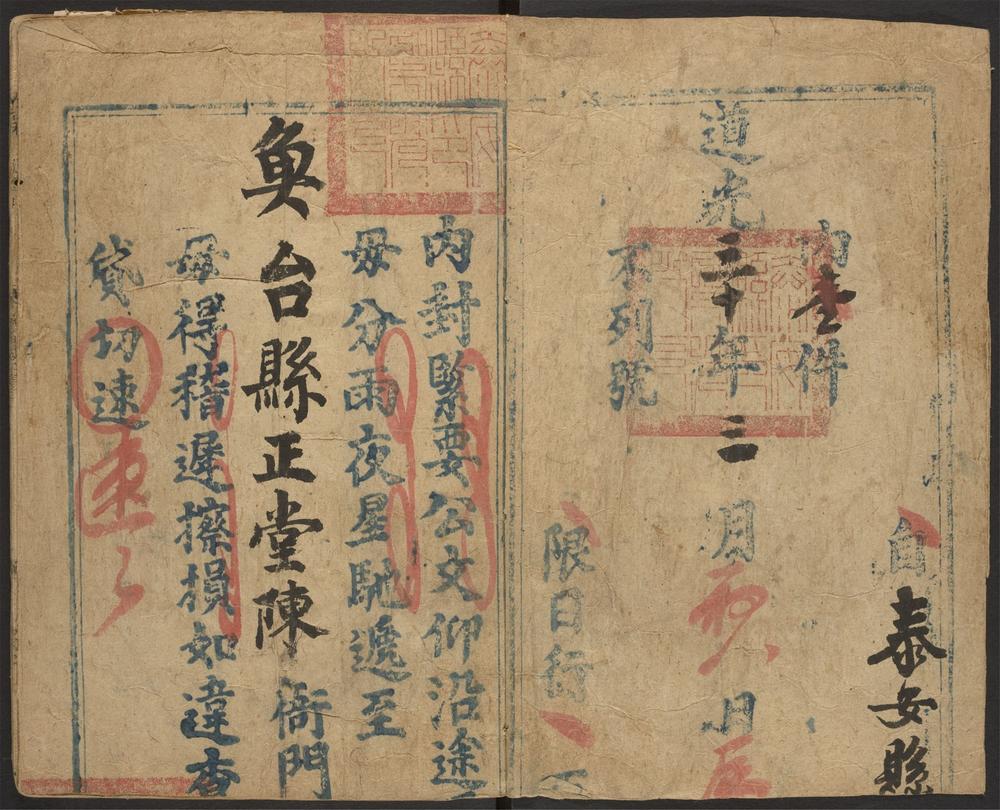 自泰安縣
內壹件
道光三十年三月初八日
不列號
限日行
內封緊要公文仰沿途
毋分雨夜星馳遞至
魚台縣正堂陳衙門
毋得稽遲擦損如違查
貸切速速